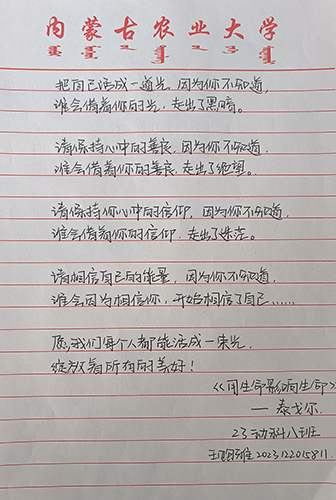 内蒙古农业大学
把自己活成一道光,因为你不知道,
谁会借着你的光,走出了黑暗。
请保持心中的善良,因为你不知道,
谁会借着你的善良,走出了绝望。
请保持你心中的信仰,因为你不知道,
谁会借着你的信仰,走出了迷茫。
请相信自己的能量,因为你不知道,
谁会因为相信你,开始相信了自己……
愿我们每个人都能活成一束光,
绽放着所有的美好!
《用生命影响生命》
——泰戈尔
23动科八班
2023122015811